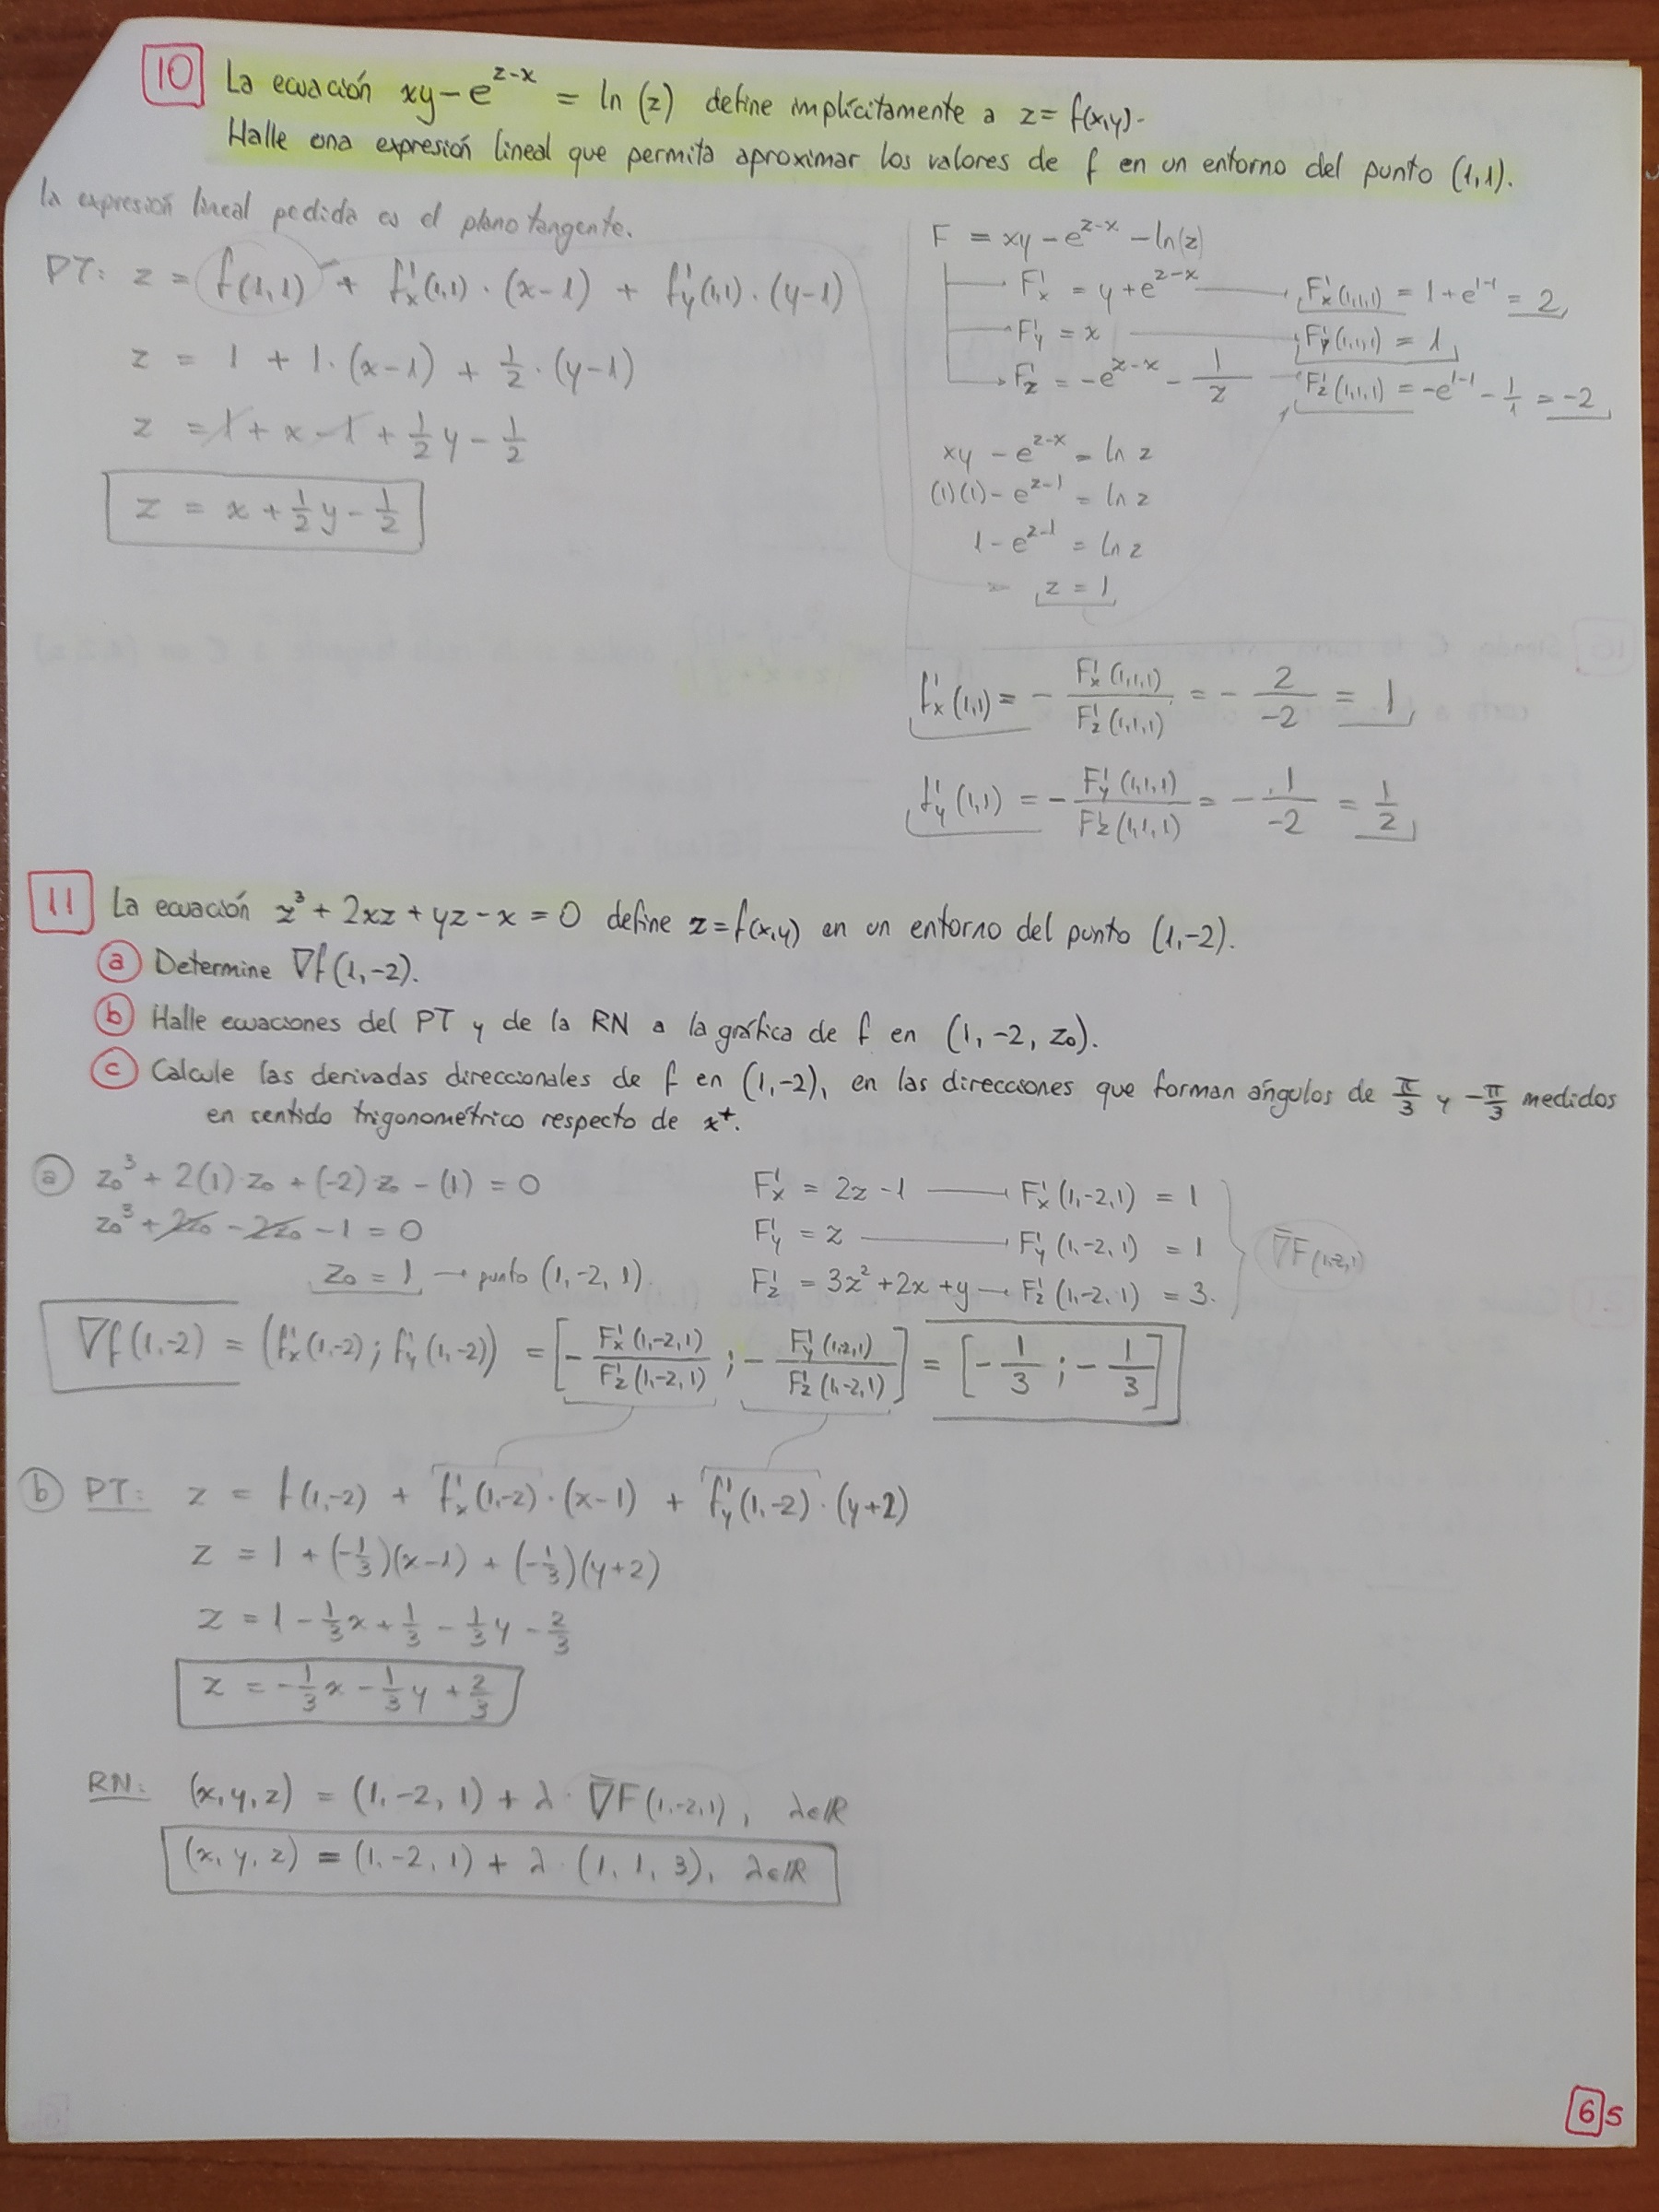 10 La ecuación xy - e^(z-x) = ln (z) define implícitamente a z = f(x,y).
Halle una expresión lineal que permita aproximar los valores de f en un entorno del punto (1,1).
la expresión lineal pedida es el plano tangente.
PT: z = f(1,1) + f'x(1,1) · (x-1) + f'y(1,1) · (y-1)
z = 1 + 1·(x-1) + 1/2 · (y-1)
z = 1 + x - 1 + 1/2 y - 1/2
z = x + 1/2 y - 1/2
F = xy - e^(z-x) - ln(z)
F'x = y + e^(z-x) → F'x(1,1,1) = 1 + e^(1-1) = 2
F'y = x F'y(1,1,1) = 1
F'z = -e^(z-x) - 1/z → F'z(1,1,1) = -e^(1-1) - 1/1 = -2
xy - e^(z-x) = ln z
(1)(1) - e^(z-1) = ln z
1 - e^(z-1) = ln z
z = 1
f'x(1,1) = - F'x(1,1,1)/F'z(1,1,1) = - 2/-2 = 1
f'y(1,1) = - F'y(1,1,1)/F'z(1,1,1) = - 1/-2 = 1/2
11 La ecuación z³ + 2xz + yz - x = 0 define z = f(x,y) en un entorno del punto (1,-2).
a Determine ∇f(1,-2).
b Halle ecuaciones del PT y de la RN a la gráfica de f en (1, -2, z₀).
c Calcule las derivadas direccionales de f en (1,-2), en las direcciones que forman ángulos de π/3 y -π/3 medidos
en sentido trigonométrico respecto de x⁺.
a z₀³ + 2(1)·z₀ + (-2)·z₀ - (1) = 0
z₀³ + 2z₀ - 2z₀ - 1 = 0
z₀ = 1 → punto (1,-2,1)
F'x = 2z - 1 → F'x(1,-2,1) = 1
F'y = z → F'y(1,-2,1) = 1
F'z = 3z² + 2x + y → F'z(1,-2,1) = 3.
∇F(1,-2,1)
∇f(1,-2) = (f'x(1,-2); f'y(1,-2)) = [- F'x(1,-2,1)/F'z(1,-2,1) ; - F'y(1,-2,1)/F'z(1,-2,1)] = [- 1/3 ; - 1/3]
b PT: z = f(1,-2) + f'x(1,-2)·(x-1) + f'y(1,-2)·(y+2)
z = 1 + (-1/3)(x-1) + (-1/3)(y+2)
z = 1 - 1/3 x + 1/3 - 1/3 y - 2/3
z = -1/3 x - 1/3 y + 2/3
RN: (x,y,z) = (1,-2,1) + λ · ∇F(1,-2,1), λ∈ℝ
(x,y,z) = (1,-2,1) + λ · (1, 1, 3), λ∈ℝ
6 5